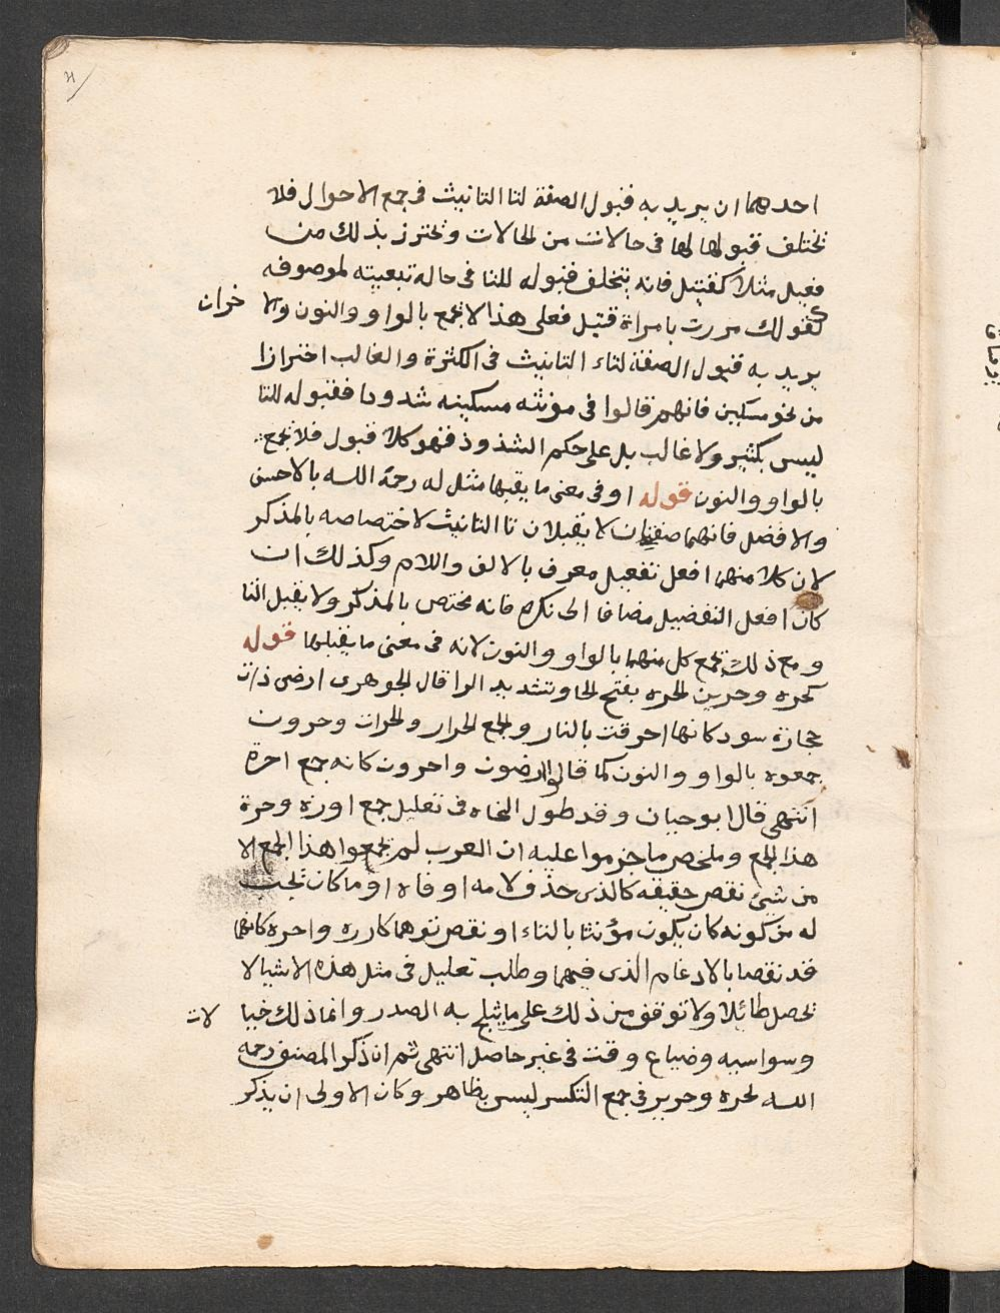 احدهما ان يريد به قبول الصفة لتا التانيث فى جمع الاحوال فلا
تختلف قبولها لها فى حالات من الحالات وتحترز بذلك من
فعيل مثلا كقتيل فانه يتخلف قبوله للتا فى حالة تبعيته لموصوفه
كقولك مررت بامراة قتيل فعلى هذا لا تجمع بالواو والنون والا خران
يريد به قبول الصفة لتاء التانيث فى الكثرة والغالب احترازا
من نحو مسكين فانهم قالوا فى مونثه مسكينه شدودا فقبوله للتا
ليس بكثير ولا غالب بل على حكم الشذوذ فهو كلا قبول فلا تجمع
بالواو والنون قوله او فى معنى ما يقبلها مثل له رحمة الله بالاحسن
والافضل فانهما صفتان لا يقبلان تا التانيث لاختصاصه بالمذكر
لان كلا منهما افعل تفعيل معرف بالالف واللام وكذلك ان
كان افعل التفضيل مضافا الى نكرة فانه مختص بالمذكر ولا يقبل التا
ومع ذلك تجمع كل منهما بالواو والنون لانه فى معنى ما يقبلها قوله
كحره وحرين الحره بفتح الحا وتشديد الرا قال الجوهرى ارض ذات
حجارة سود كانها احرقت بالنار والجمع الحرار والحرات وحرون
جمعوه بالواو والنون كما قالوا ارضون واحرون كانه جمع احرة
انتهى قال ابو حيان وقد طول النحاه فى تعليل جمع اوزة وحرة
هذا الجمع وملخص ما جزموا عليه ان العرب لم تجمعوا هذا الجمع الا
من شىء نقص حقيقه كالذى حذف لامه او فاه او ما كان تجب
له من كونه كان يكون مؤنثا بالتاء او نقص توهما كارره واحره كانهما
قد نقصا بالادغام الذى فيهما وطلب تعليل فى مثل هذه الاشيا لا
تحصل طائلا ولا توقف من ذلك على ما يثلج به الصدر وانما ذلك خيا لات
وسواسيه وضياع وقت فى غير حاصل انتهى ثم ان ذكر المصنف رحمه
الله لحره وحرير فى جمع التكسر ليس بظاهر وكان الاولى ان يذكر